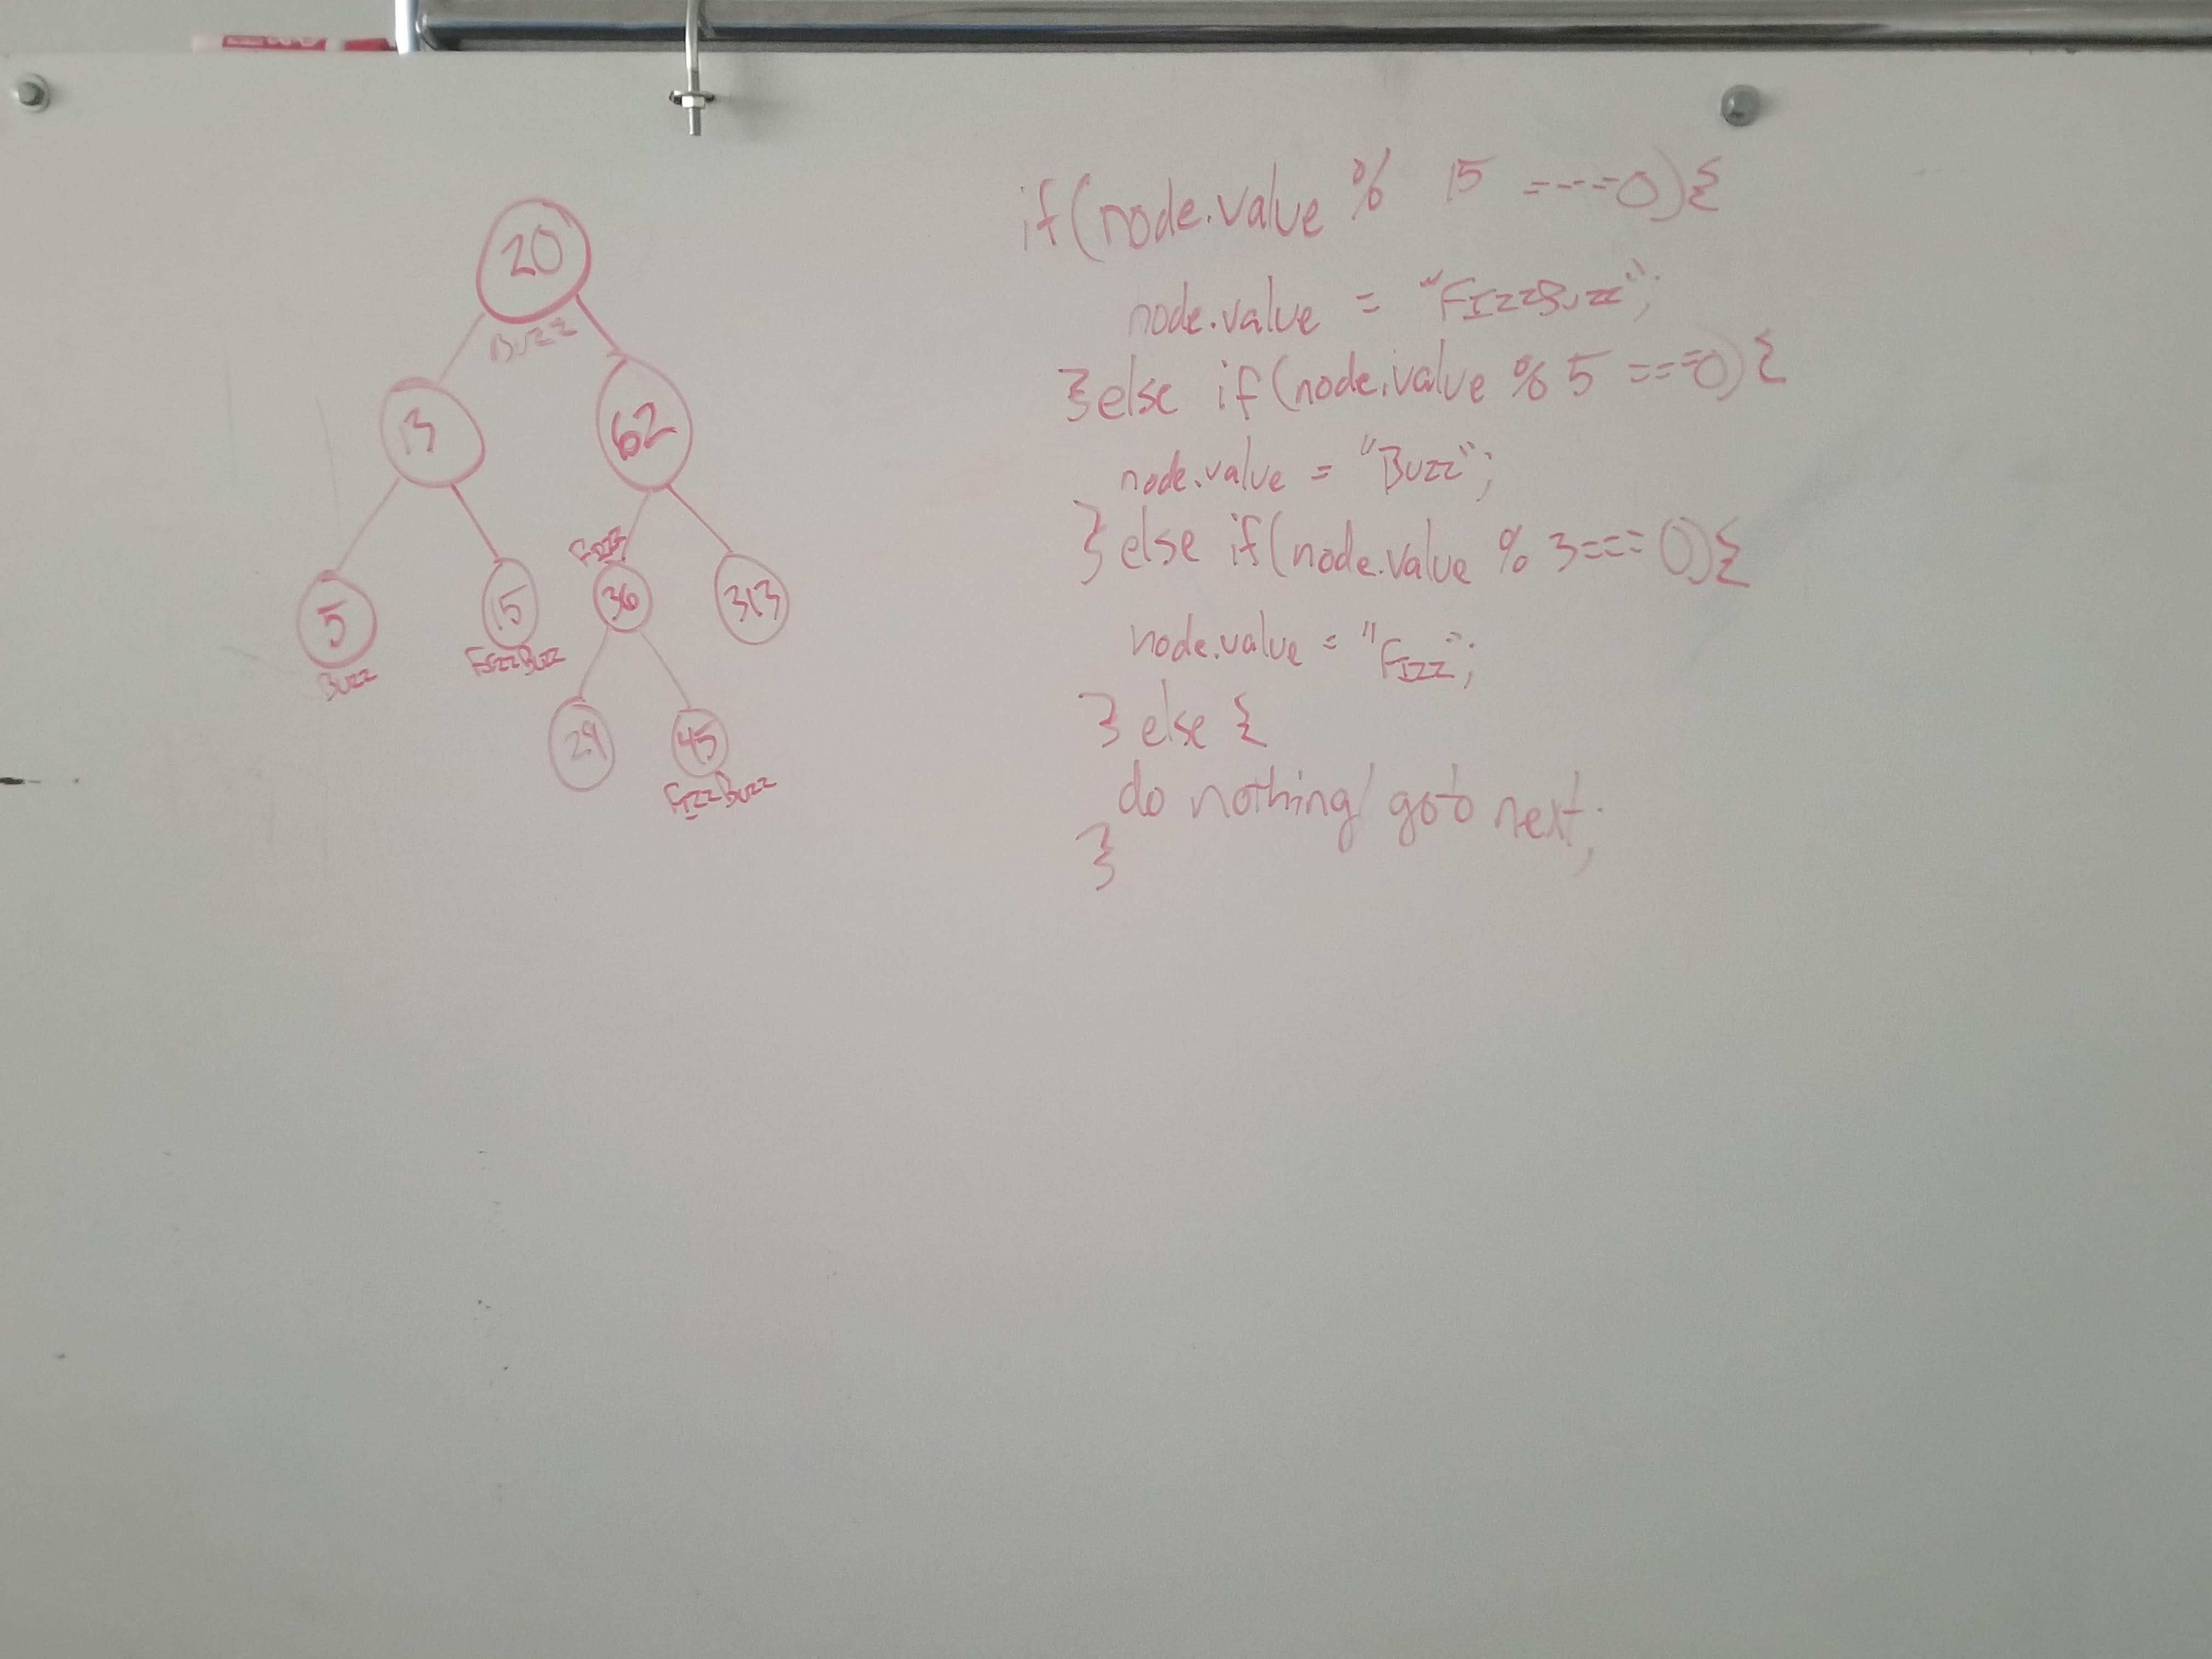 20
Buzz
13
62
Fizz
5
15
36
313
Buzz
FizzBuzz
29
45
FizzBuzz
if(node.value % 15 ====0){
node.value = "FizzBuzz";
}else if(node.value % 5 ===0){
node.value = "Buzz";
} else if(node.value % 3===0){
node.value = "Fizz";
} else {
do nothing/ goto next;
}